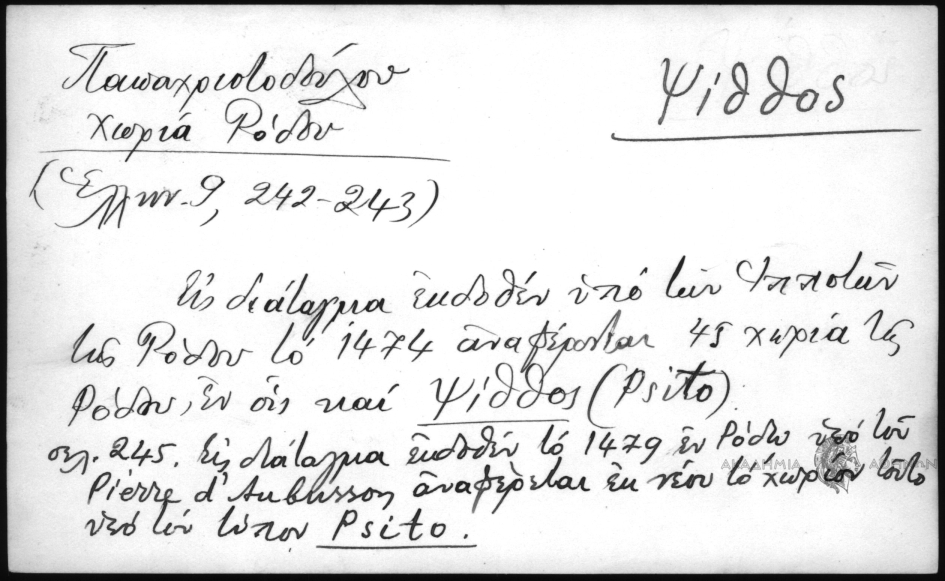 Παπαχριστοδούλου
Ψίθθος
χωριά Ρόδου
(Ἑλλην. 9, 242-243)
Εἰς διάταγμα ἐκδοθέν ὑπό τῶν Ἱπποτῶν
τῆς Ρόδου τό 1474 ἀναφέρονται 45 χωριά τῆς
Ρόδου, ἐν οἷς καί Ψίθθος (Psito)
σελ. 245. Εἰς διάταγμα ἐκδοθέν τό 1479 ἐν Ρόδῳ ὑπό τοῦ
Pierre d'Aubusson ἀναφέρεται ἐκ νέου τό χωρίον τοῦτο
ὑπό τόν τύπον Psito.
ΑΚΑΔΗΜΙΑ ΑΘΗΝΩΝ